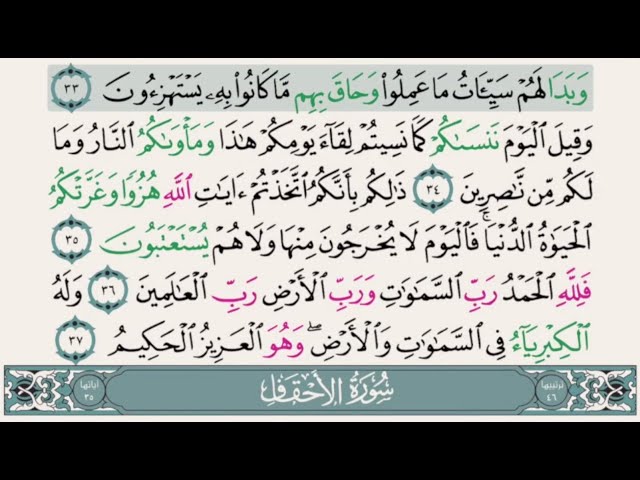 وَبَدَا لَهُمْ سَيِّـَٔاتُ مَا عَمِلُوا۟ وَحَاقَ بِهِم مَّا كَانُوا۟ بِهِۦ يَسْتَهْزِءُونَ ٣٣
وَقِيلَ ٱلْيَوْمَ نَنسَىٰكُمْ كَمَا نَسِيتُمْ لِقَآءَ يَوْمِكُمْ هَٰذَا وَمَأْوَىٰكُمُ ٱلنَّارُ وَمَا
لَكُم مِّن نَّٰصِرِينَ ٣٤ ذَٰلِكُم بِأَنَّكُمُ ٱتَّخَذْتُمْ ءَايَٰتِ ٱللَّهِ هُزُوًا وَغَرَّتْكُمُ
ٱلْحَيَوٰةُ ٱلدُّنْيَا ۚ فَٱلْيَوْمَ لَا يُخْرَجُونَ مِنْهَا وَلَا هُمْ يُسْتَعْتَبُونَ ٣٥
فَلِلَّهِ ٱلْحَمْدُ رَبِّ ٱلسَّمَٰوَٰتِ وَرَبِّ ٱلْأَرْضِ رَبِّ ٱلْعَٰلَمِينَ ٣٦ وَلَهُ
ٱلْكِبْرِيَآءُ فِى ٱلسَّمَٰوَٰتِ وَٱلْأَرْضِ ۖ وَهُوَ ٱلْعَزِيزُ ٱلْحَكِيمُ ٣٧
ترتيبها ٤٦ سُورَةُ الأَحْقَافِ آياتها ٣٥